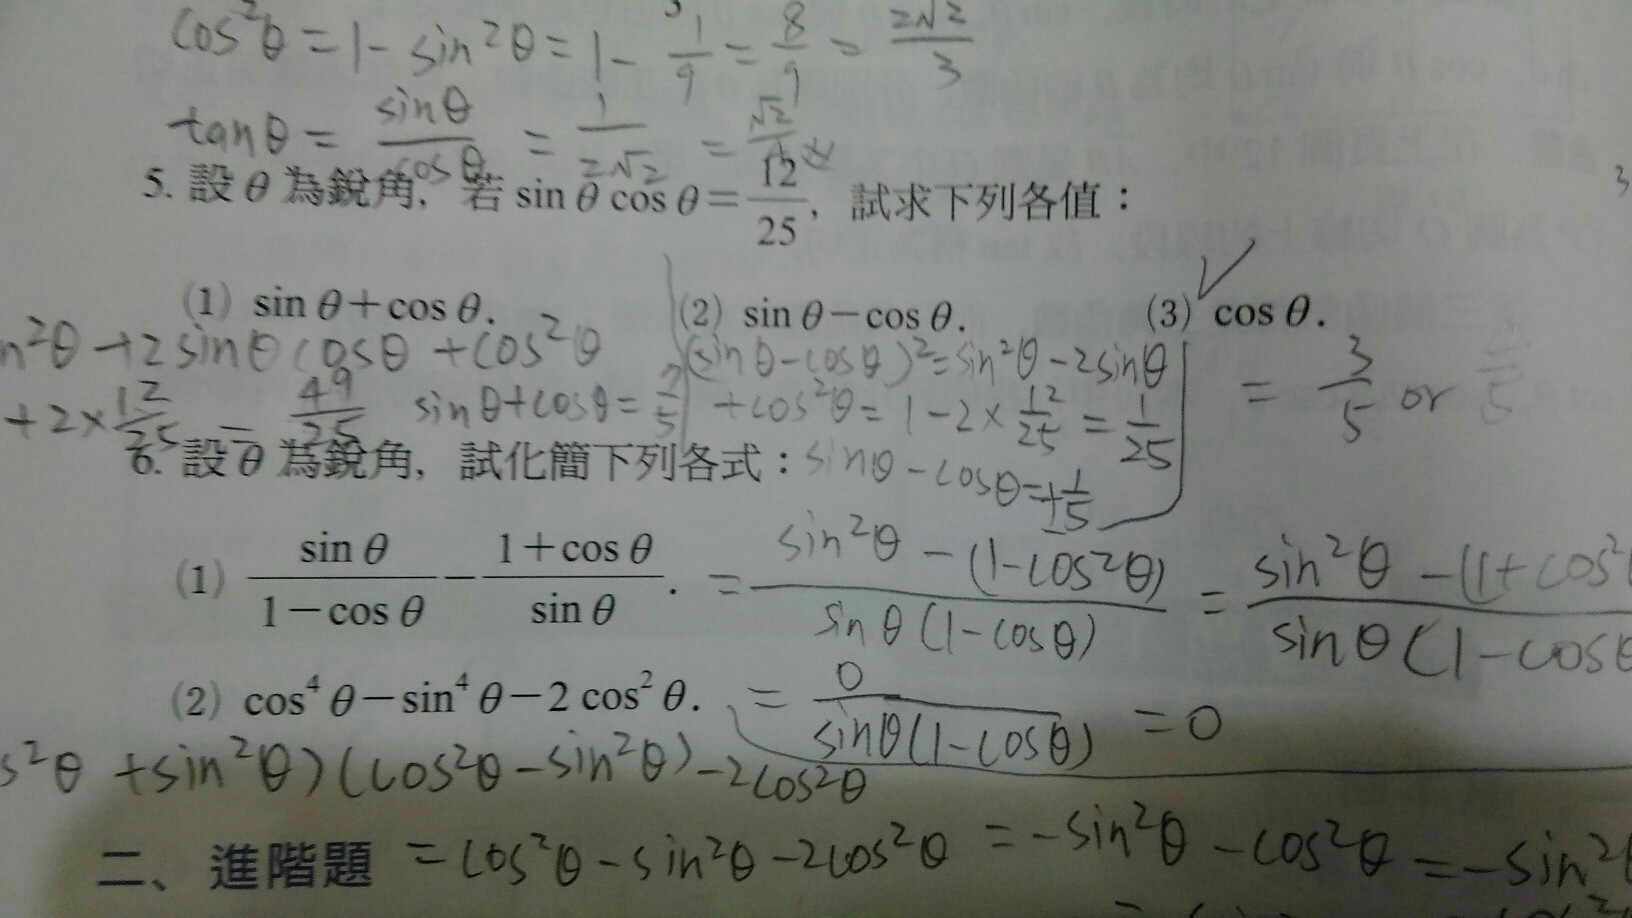 cos²θ = 1 - sin²θ = 1 - 1/9 = 8/9 = 2√2/3
tanθ = sinθ/cosθ = 1/2√2 = √2/4
5. 設 θ 為銳角, 若 sin θ cos θ = 12/25, 試求下列各值：
(1) sin θ + cos θ. (2) sin θ - cos θ. (3) cos θ.
n²θ + 2 sinθ cosθ + cos²θ
+ 2 × 12/25 = 49/25 sinθ + cosθ = 7/5
(sinθ - cosθ)² = sin²θ - 2sinθ
+ cos²θ = 1 - 2 × 12/25 = 1/25
sinθ - cosθ = ±1/5
= 3/5 or
6. 設 θ 為銳角, 試化簡下列各式：
(1) sin θ/1 - cos θ - 1 + cos θ/sin θ. = sin²θ - (1 - cos²θ)/sinθ(1 - cosθ) = sin²θ - (1 + cos²/sinθ(1 - cosθ
(2) cos⁴ θ - sin⁴ θ - 2 cos² θ. = 0/sinθ(1 - cosθ) = 0
s²θ + sin²θ)(cos²θ - sin²θ) - 2cos²θ
二、進階題 = cos²θ - sin²θ - 2cos²θ = -sin²θ - cos²θ = -sin²